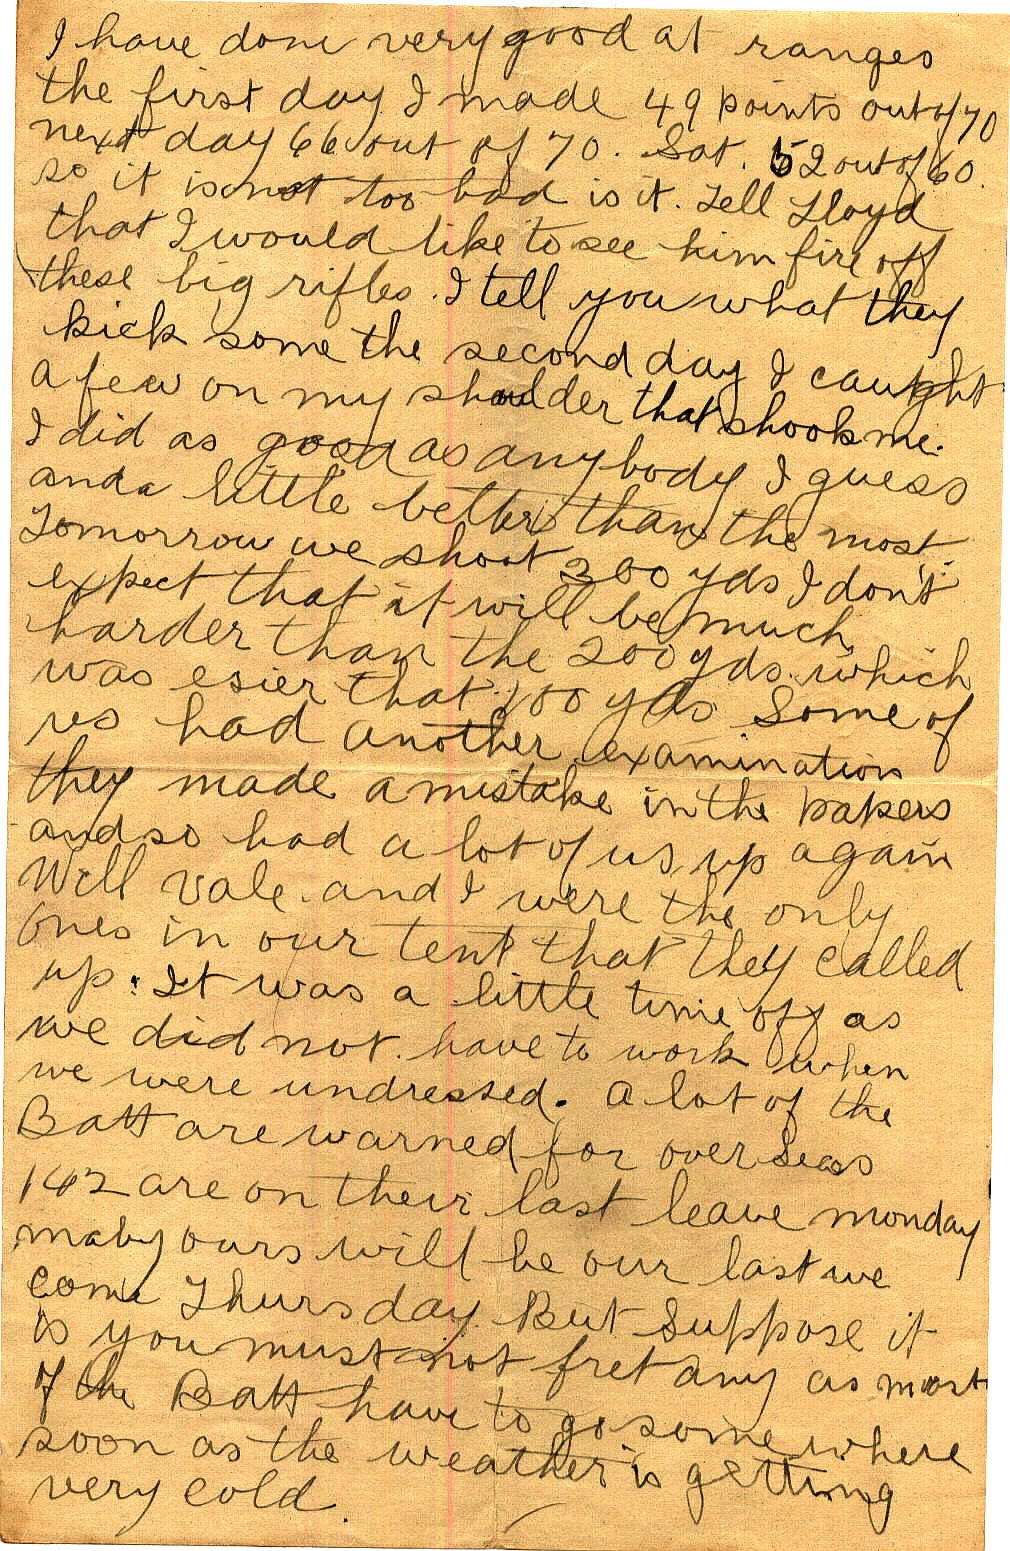 I have done very good at ranges
the first day I made 49 points out of 70
next day 66 out of 70. Sat. 52 out of 60.
so it is not too bad is it. Tell Lloyd
that I would like to see him fire off
these big rifles. I tell you what they
kick some the second day I caught
a few on my shoulder that shook me.
I did as good as anybody I guess
and a little better than the most
Tomorrow we shoot 300 yds I don't
expect that it will be much
harder than the 200 yds. which
was esier that 100 yds Some of
us had another examination
they made a mistake in the papers
and so had a lot of us up again
Will Vale and I were the only
ones in our tent that they called
up. It was a little time off as
we did not have to work when
we were undressed. A lot of the
Batt are warned for overseas
142 are on their last leave monday
maby ours will be our last we
come Thursday. But Suppose it
is you must not fret any as most
of the Batt have to go some where
soon as the weather is getting
very cold.